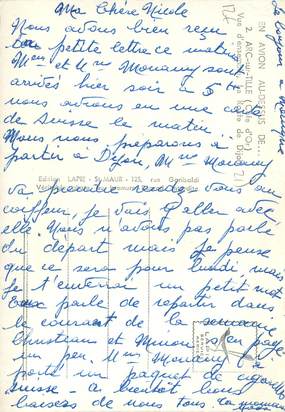 Ma Chère Nicole
Nous avons bien reçu
ta petite lettre ce matin
Mr et Mme Monamy sont
arrivés hier soir à 5 h
nous avions eu une carte
de Suisse le matin
Nous nous préparons à
partir à Dijon, Mme Monamy
va prendre rendez vous au
coiffeur, je vais y aller avec
elle. Nous n'avons pas parlé
du départ mais je pense
que ce sera pour lundi, mais
je t'enverrai un petit mot
Eux parle de repartir dans
le courant de la semaine
Christian et Minou
un peu. Mme Monamy a
porté un paquet de
Suisse - à bientôt bons
baisers de nous tous ta maman
Le bonjour à
EN AVION AU-DESSUS DE...
2. ARC-sur-TILLE (Côte d'Or)
Vue d'ensemble et Route de Dijon
Edition LAPIE - St-MAUR - 125, rue Garibaldi
LAPIE